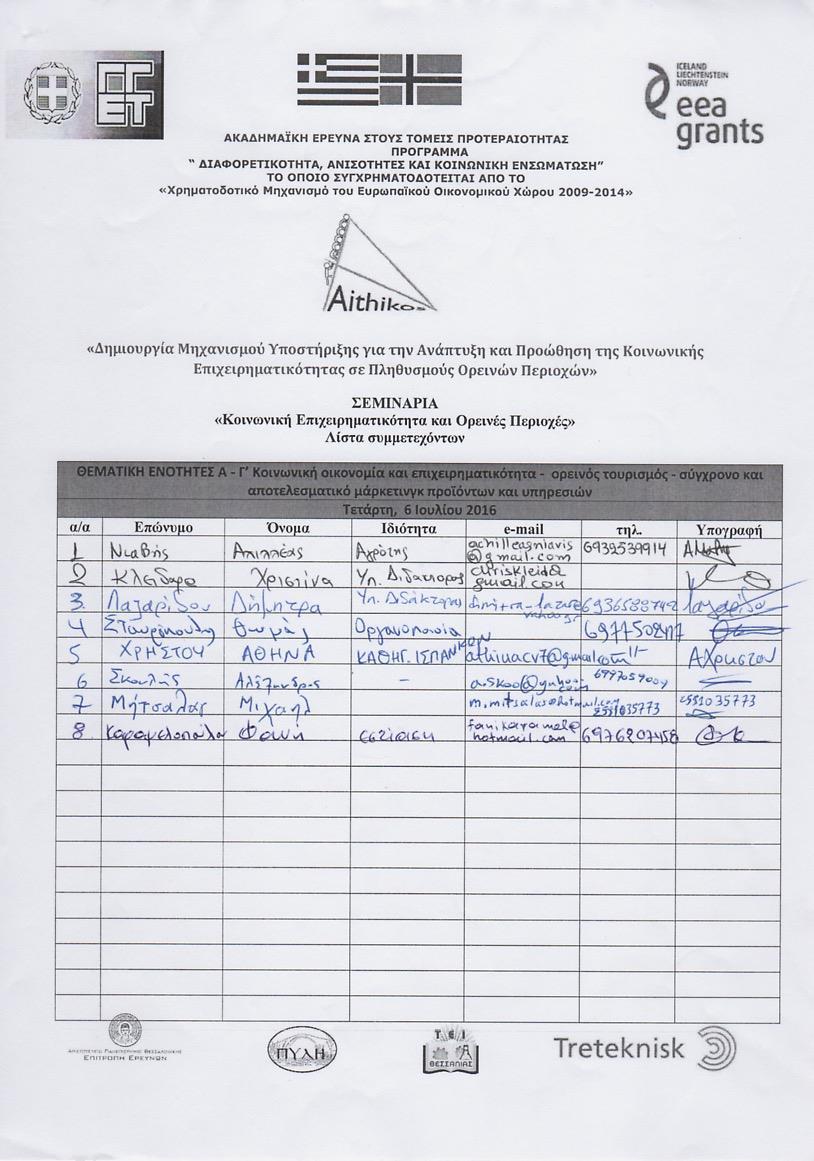 ΓΓΕΤ
ICELAND
LIECHTENSTEIN
NORWAY
eea
grants
ΑΚΑΔΗΜΑΪΚΗ ΕΡΕΥΝΑ ΣΤΟΥΣ ΤΟΜΕΙΣ ΠΡΟΤΕΡΑΙΟΤΗΤΑΣ
ΠΡΟΓΡΑΜΜΑ
“ ΔΙΑΦΟΡΕΤΙΚΟΤΗΤΑ, ΑΝΙΣΟΤΗΤΕΣ ΚΑΙ ΚΟΙΝΩΝΙΚΗ ΕΝΣΩΜΑΤΩΣΗ”
ΤΟ ΟΠΟΙΟ ΣΥΓΧΡΗΜΑΤΟΔΟΤΕΙΤΑΙ ΑΠΟ ΤΟ
«Χρηματοδοτικό Μηχανισμό του Ευρωπαϊκού Οικονομικού Χώρου 2009-2014»
Aithikos
«Δημιουργία Μηχανισμού Υποστήριξης για την Ανάπτυξη και Προώθηση της Κοινωνικής
Επιχειρηματικότητας σε Πληθυσμούς Ορεινών Περιοχών»
ΣΕΜΙΝΑΡΙΑ
«Κοινωνική Επιχειρηματικότητα και Ορεινές Περιοχές»
Λίστα συμμετεχόντων
ΘΕΜΑΤΙΚΗ ΕΝΟΤΗΤΕΣ Α - Γ’ Κοινωνική οικονομία και επιχειρηματικότητα - ορεινός τουρισμός - σύγχρονο και
αποτελεσματικό μάρκετινγκ προϊόντων και υπηρεσιών
Τετάρτη, 6 Ιουλίου 2016
α/α Επώνυμο Όνομα Ιδιότητα e-mail τηλ. Υπογραφή
1 Νιαβής Αχιλλέας Αγρότης achilleasniavis @gmail.com 6939539914
2 Κλειδαρα Χριστίνα Υπ. Διδακτορας chriskleid@ gmail.com
3 Λαζαρίδου Δήμητρα Υπ. Διδάκτορας 6936588742 Λαζαρίδου
4 Θωμάς Οργανοποιία
5 ΧΡΗΣΤΟΥ ΑΘΗΝΑ ΚΑΘΗΓ. ΙΣΠΑΝΙΚΩΝ athinacv7@gmail.com Α Χρηστου
6 Σκουλής Αλέξανδρος -
7 Μήτσαλας Μιχαήλ m.mitsalas@hotmail.com 2551035773 2551035773
8 Καραμελοπούλου Φανή εστίαση fanikaramel@ hotmail.com 6976207458
ΑΡΙΣΤΟΤΕΛΕΙΟ ΠΑΝΕΠΙΣΤΗΜΙΟ ΘΕΣΣΑΛΟΝΙΚΗΣ
ΕΠΙΤΡΟΠΗ ΕΡΕΥΝΩΝ
ΠΥΛΗ
ΤΕΙ
ΘΕΣΣΑΛΙΑΣ
Treteknisk